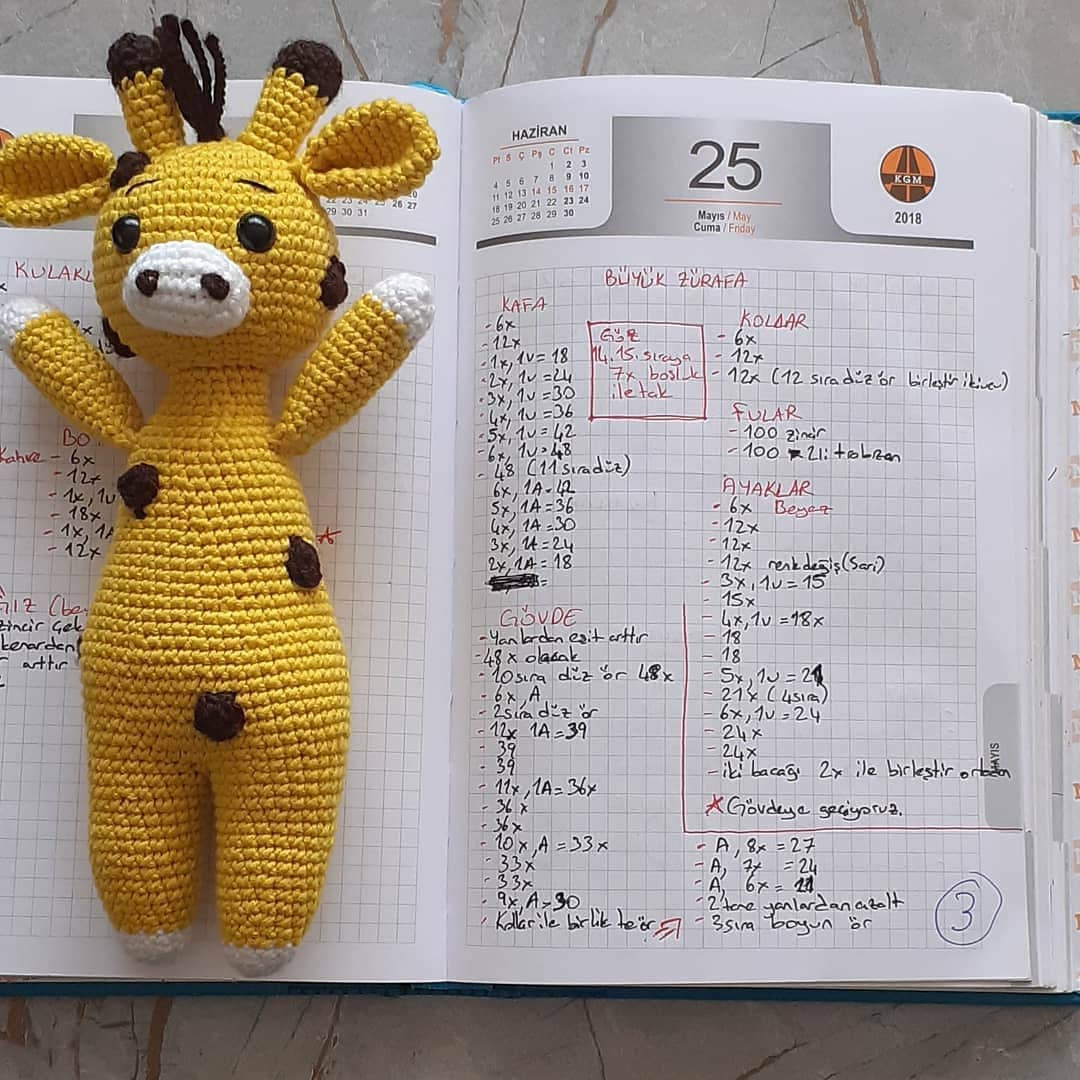 HAZİRAN
Pt S Ç Pş C Ct Pz
1 2 3
4 5 6 7 8 9 10
11 12 13 14 15 16 17
18 19 20 21 22 23 24
25 26 27 28 29 30
25
Mayıs / May
Cuma / Friday
KGM
2018
20
26 27
29 30 31
BÜYÜK ZÜRAFA
KAFA
- 6x
- 12x
- 1x, 1v = 18
- 2x, 1v = 24
- 3x, 1v = 30
- 4x, 1v = 36
- 5x, 1v = 42
- 6x, 1v = 48
- 48 (11 sıra düz)
6x, 1A = 42
5x, 1A = 36
4x, 1A = 30
3x, 1A = 24
2x, 1A = 18
=
Göz
14.15. sıraya
7x boşluk
ile tak
GÖVDE
- Yanlardan eşit arttır
- 48x olacak
- 10 sıra düz ör 48x
- 6x, A
- 2 sıra düz ör
- 12x 1A = 39
- 39
- 39
- 11x, 1A = 36x
- 36x
- 36x
- 10x, A = 33x
- 33x
- 33x
- 9x, A = 30
- Kollar ile birlikte ör
KOLLAR
- 6x
- 12x
- 12x (12 sıra düz ör birleştir ikiucu)
FULAR
- 100 zincir
- 100 2li trabzan
AYAKLAR
- 6x Beyaz
- 12x
- 12x
- 12x renk değiş (Sarı)
- 3x, 1v = 15
- 15x
- 4x, 1v = 18x
- 18
- 18
- 5x, 1v = 21
- 21x (4sıra)
- 6x, 1v = 24
- 24x
- 24x
- iki bacağı 2x ile birleştir ortadan
* Gövdeye geçiyoruz.
- A, 8x = 27
- A, 7x = 24
- A, 6x = 21
- 2 tane yanlardan azalt
- 3 sıra boyun ör
3
MAYIS
KULAKL
BO
Kahve - 6x
- 12x
- 1x, 1v
- 18x
- 1x, 1A
- 12x
zincir çek
kenardan
arttır